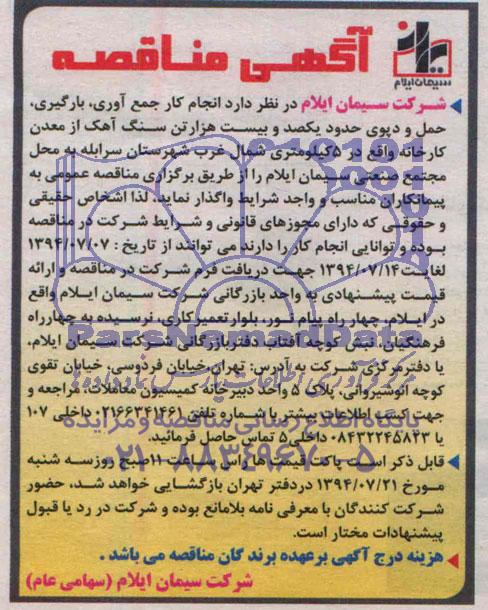 سیمان ایلام
آگهی مناقصه
شرکت سیمان ایلام در نظر دارد انجام کار جمع آوری، بارگیری،
حمل و دپوی حدود یکصد و بیست هزارتن سنگ آهک از معدن
کارخانه واقع در ۵کیلومتری شمال غرب شهرستان سرابله به محل
مجتمع صنعتی سیمان ایلام را از طریق برگزاری مناقصه عمومی به
پیمانکاران مناسب و واجد شرایط واگذار نماید. لذا اشخاص حقیقی
و حقوقی که دارای مجوزهای قانونی و شرایط شرکت در مناقصه
بوده و توانایی انجام کار را دارند می توانند از تاریخ : ۱۳۹۴/۰۷/۰۷
لغایت ۱۳۹۴/۰۷/۱۴ جهت دریافت فرم شرکت در مناقصه و ارائه
قیمت پیشنهادی به واحد بازرگانی شرکت سیمان ایلام واقع
در ایلام، چهارراه پیام نور، بلوار تعمیرکاری، نرسیده به چهارراه
فرهنگیان، نبش کوچه آفتاب دفتر بازرگانی شرکت سیمان ایلام،
یا دفترمرکزی شرکت به آدرس: تهران خیابان فردوسی، خیابان تقوی
کوچه انوشیروانی، پلاک ۵ واحد دبیرخانه کمیسیون معاملات، مراجعه و
جهت کسب اطلاعات بیشتر با شماره تلفن ۰۲۱۶۶۳۴۱۴۶۱ داخلی ۱۰۷
یا ۰۸۴۳۲۲۴۵۸۲۳ داخلی ۵ تماس حاصل فرمائید.
قابل ذکر است پاکت قیمت ها راس ساعت ۱۱ صبح روز سه شنبه
مورخ ۱۳۹۴/۰۷/۲۱ در دفتر تهران بازگشایی خواهد شد، حضور
شرکت کنندگان با معرفی نامه بلامانع بوده و شرکت در رد یا قبول
پیشنهادات مختار است.
هزینه درج آگهی برعهده برنده گان مناقصه می باشد .
شرکت سیمان ایلام (سهامی عام)
ParsNamadData
پایگاه اطلاع رسانی مناقصه و مزایده
۰۲۱-۸۸۳۴۹۶۷۰-۵